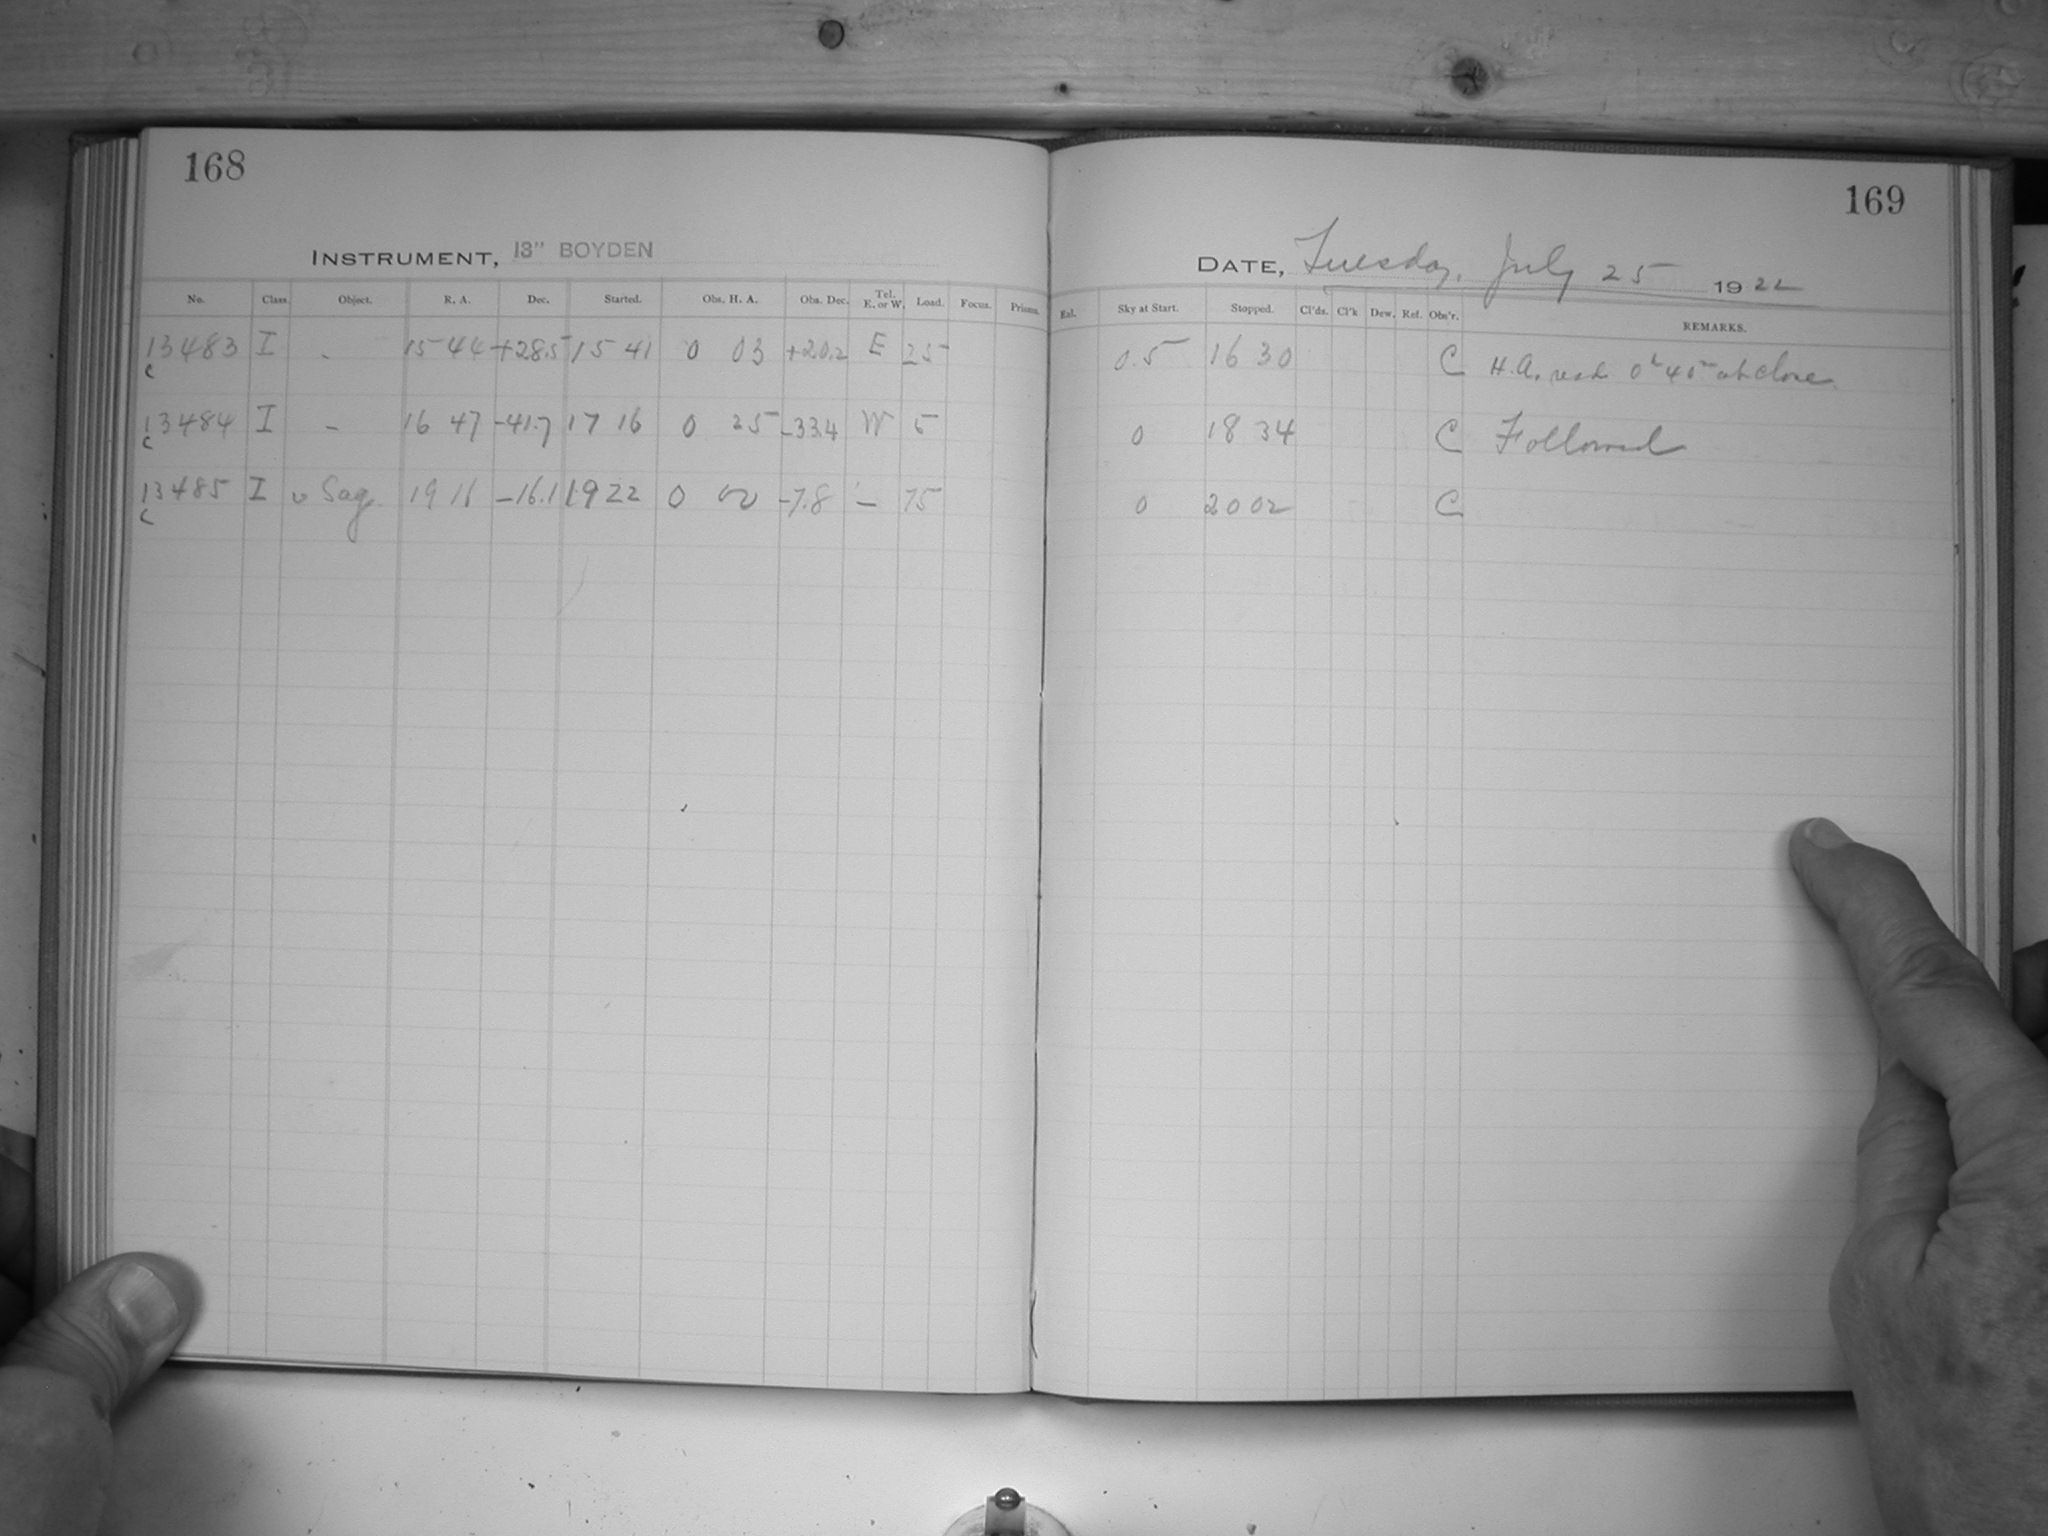 168
169
INSTRUMENT, 13" BOYDEN
DATE, Tuesday, July 25 1922
No. Class. Object. R. A. Dec. Started. Obs. H. A. Obs. Dec. Tel. E. or W. Load. Focus. Prisms. Eal. Sky at Start. Stopped. Cl'ds. Cl'k Dew. Ref. Obs'r. REMARKS.
13483 I - 15 44 +28.5 15 41 0 03 +20.2 E 25 0.5 16 30 C H.A. read 0h 40m at close
c
13484 I - 16 47 -41.7 17 16 0 25 -33.4 W 5 0 18 34 C Followed
c
13485 I υ Sag. 19 16 -16.1 19 22 0 00 -7.8 - 75 0 20 02 C
c